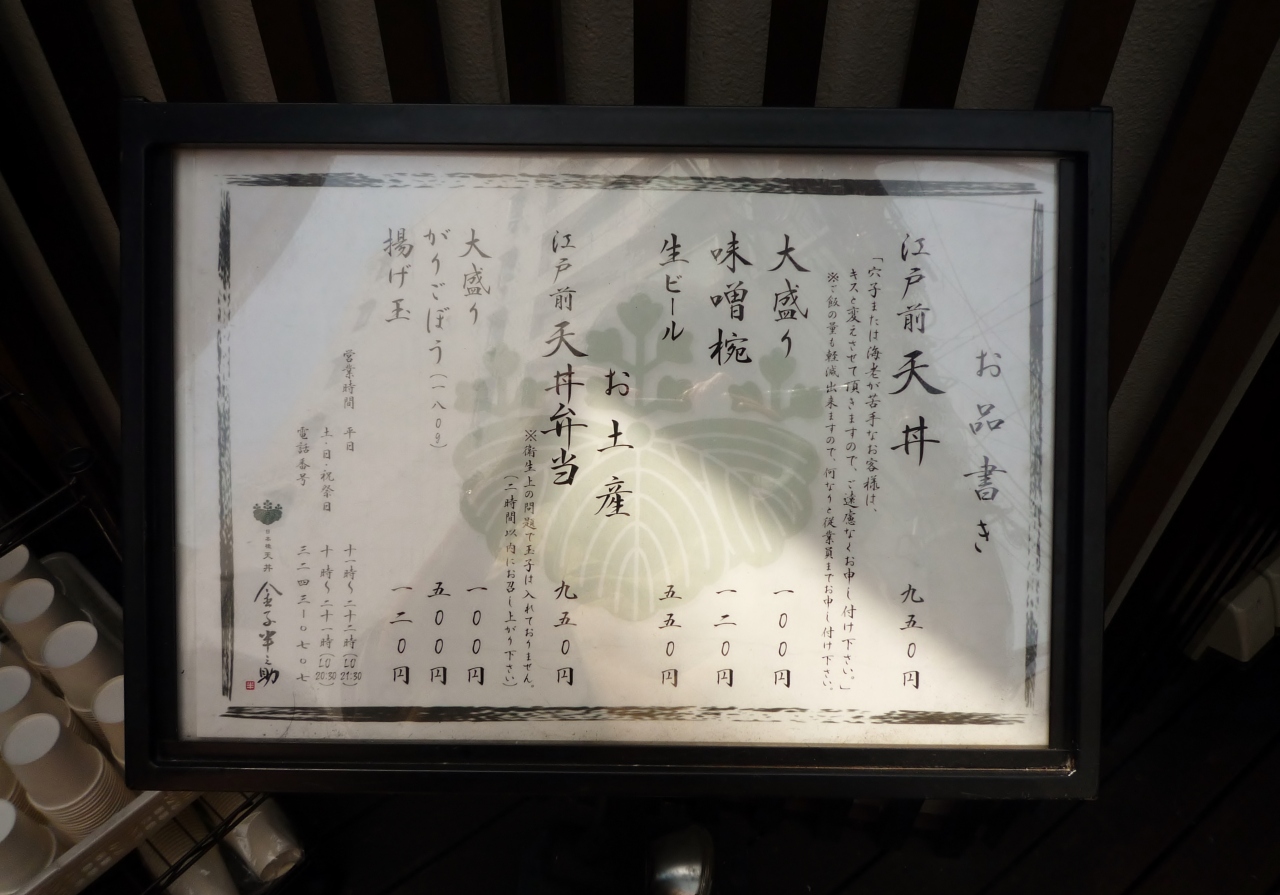 お品書き
江戸前 天丼 九五0円
「穴子または海老が苦手なお客様は、
キスと変えさせて頂きますので、ご遠慮なくお申し付け下さい。」
※ご飯の量も軽減出来ますので、何なりと従業員までお申し付け下さい。
大盛り 一00円
味噌椀 一二0円
生ビール 五五0円
お土産
江戸前 天丼弁当 九五0円
※衛生上の問題で玉子は入れておりません。
(二時間以内にお召し上がり下さい)
大盛り 一00円
がりごぼう(一八0g) 五00円
揚げ玉 一二0円
営業時間 平日 十一時~二十二時(LO 21:30)
土・日・祝祭日 十時~二十一時(LO 20:30)
電話番号 三二四三-0七0七
日本橋 天丼 金子半之助